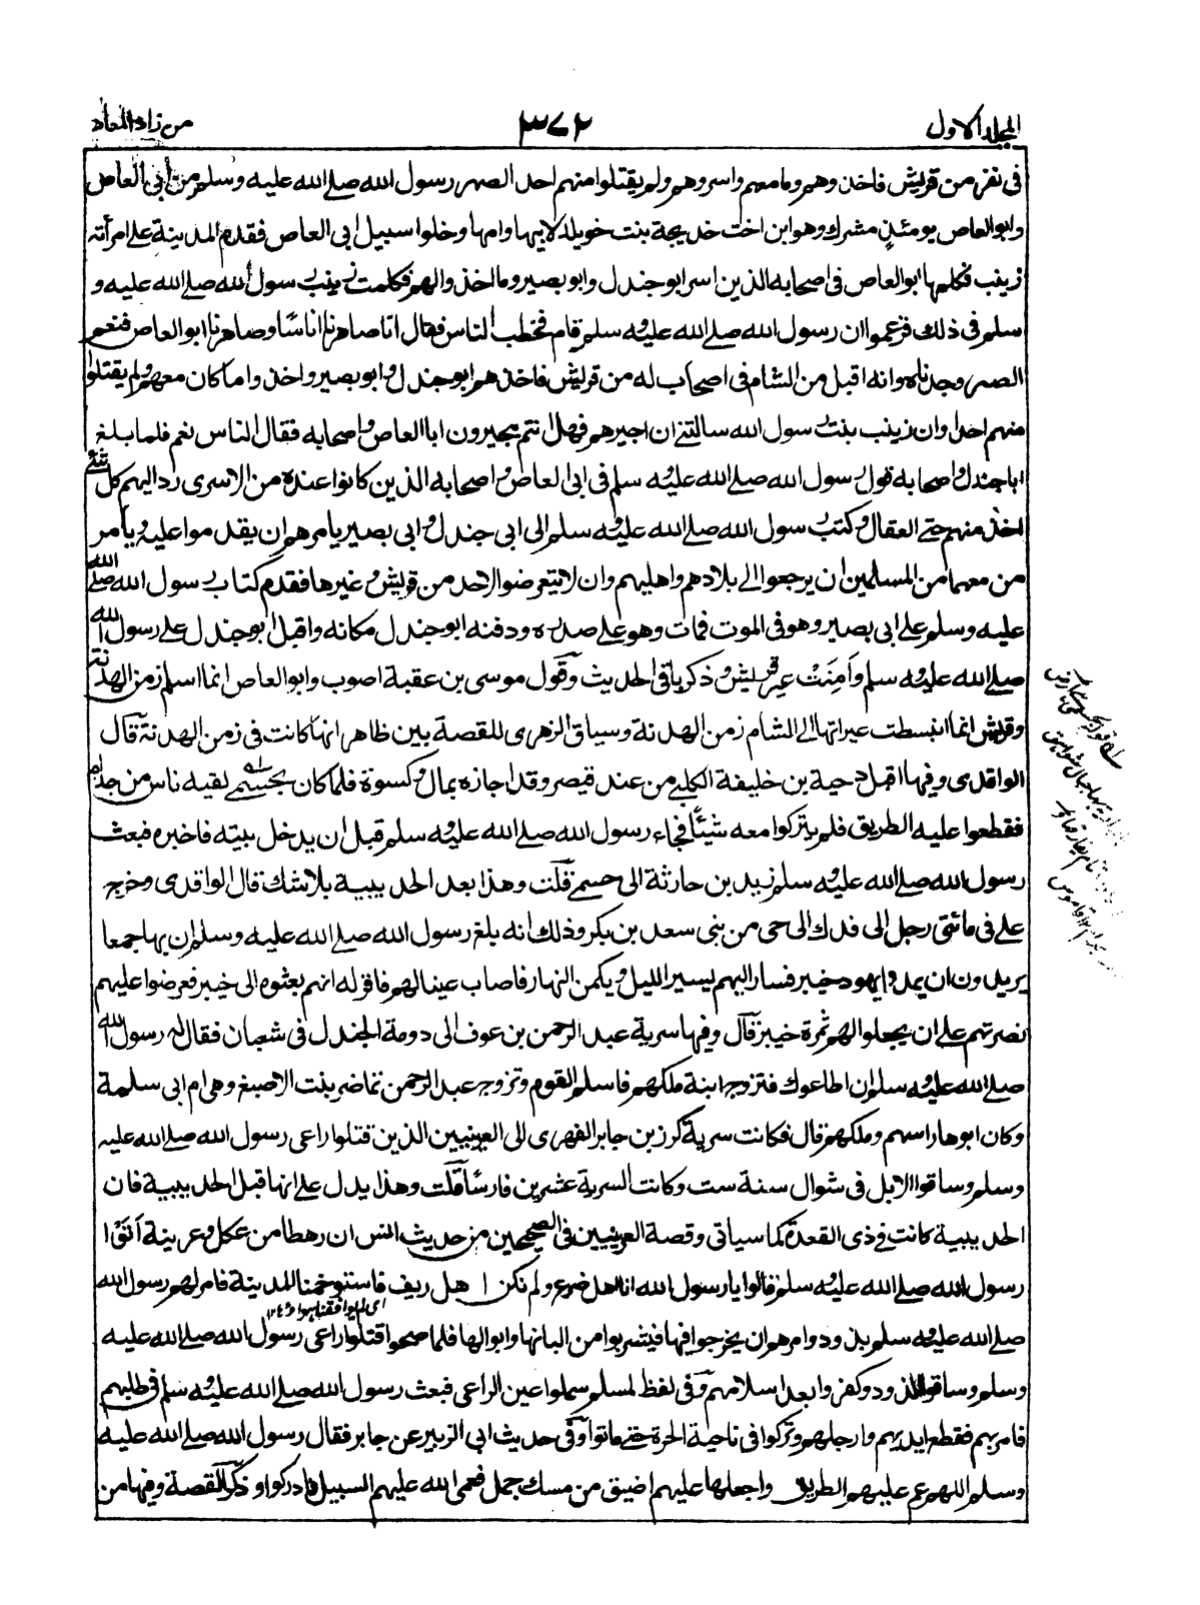 المجلد الاول
٣٧٢
من زاد المعاد
فى نفر من قريش فاخذوهم وما معهم واسروهم ولم يقتلوا منهم احد الصهر رسول الله صلے الله عليه وسلم من أبى العاص
وابو العاص يومئذٍ مشرك وهو ابن اخت خديجة بنت خويلد لابيها وامها وخلوا سبيل ابى العاص فقدم المدينة على امرأته
زينب فكلمها ابو العاص فى اصحابه الذين اسر ابو جندل وابو بصير وما اخذوا لهم فكلمت زينب رسول الله صلے الله عليه و
سلم فى ذلك فزعموا ان رسول الله صلے الله عليه وسلم قام فخطب الناس فقال انا صاهرنا اناسًا وصاهرنا ابو العاص فنعم
الصهر وجدناه وانه اقبل من الشام فى اصحاب له من قريش فاخذهم ابو جندل وابو بصير واخذوا ما كان معهم ولم يقتلوا
منهم احدا وان زينب بنت رسول الله سالتنى ان اجيرهم فهل انتم مجيرون ابا العاص واصحابه فقال الناس نعم فلما بلغ
ابا جندل واصحابه قول رسول الله صلے الله عليه وسلم فى ابى العاص واصحابه الذين كانوا عنده من الاسرى رد اليهم كل شئ
اخذ منهم حتے العقال وكتب رسول الله صلے الله عليه وسلم الى ابى جندل وابى بصير يامرهم ان يقدموا عليه ويأمر
من معهما من المسلمين ان يرجعوا الے بلادهم واهليهم وان لا يتعرضوا لاحد من قريش وغيرها فقدم كتاب رسول الله صلے الله
عليه وسلم على ابى بصير وهو فى الموت فمات وهو علے صدره ودفنه ابو جندل مكانه واقبل ابو جندل علے رسول الله
صلے الله عليه وسلم وأمِنَتْ عير قريش وذكر باقى الحديث وقول موسى بن عقبة اصوب وابو العاص انما اسلم زمن الهدنة
وقريش انما انبسطت عيراتها الے الشام زمن الهدنة وسياق الزهرى للقصة بين ظاهر انها كانت فى زمن الهدنة قال
الواقدى وفيها اقبل دحية بن خليفة الكلبے من عند قيصر وقد اجازه بمال وكسوة فلما كان بحسمے لقيه ناس من جذام
فقطعوا عليه الطريق فلم يتركوا معه شيئًا فجاء رسول الله صلے الله عليه وسلم قبل ان يدخل بيته فاخبره فبعث
رسول الله صلے الله عليه وسلم زيد بن حارثة الى حسمے قلت وهذا بعد الحديبية بلا شك قال الواقدى وخرج
على فى مائتى رجل الى فدك الى حى من بنى سعد بن بكر وذلك انه بلغ رسول الله صلے الله عليه وسلم ان بها جمعا
يريدون ان يمدوا يهود خيبر فسار اليهم يسير الليل ويكمن النهار فاصاب عينا لهم فاقر له انهم بعثوه الى خيبر فعرضوا عليهم
نصرتهم علے ان يجعلوا لهم ثمرة خيبر قال وفيها سرية عبد الرحمن بن عوف الى دومة الجندل فى شعبان فقال له رسول الله
صلے الله عليه وسلم ان اطاعوك فتزوج ابنة ملكهم فاسلم القوم وتزوج عبد الرحمن تماضر بنت الاصبغ وهى ام ابى سلمة
وكان ابوها راسهم وملكهم قال فكانت سرية كرز بن جابر الفهرى الى العرنيين الذين قتلوا راعى رسول الله صلے الله عليه
وسلم وساقوا الابل فى شوال سنة ست وكانت السرية عشرين فارسًا قلت وهذا يدل علے انها قبل الحديبية فان
الحديبية كانت فے ذى القعدة كما سياتى وقصة العرنيين فى الصحيحين من حديث انس ان رهطا من عكل وعرينة أتَوْا
رسول الله صلے الله عليه وسلم فقالوا يا رسول الله انا اهل ضرع ولم نكن اهل ريف فاستوخمنا المدينة فامر لهم رسول الله
صلے الله عليه وسلم بذود وامرهم ان يخرجوا فيها فيشربوا من البانها وابوالها فلما صحوا قتلوا راعى رسول الله صلے الله عليه
وسلم وساقوا الذود وكفروا بعد اسلامهم وفى لفظ لمسلم سملوا عين الراعى فبعث رسول الله صلے الله عليه وسلم فى طلبهم
فامر بهم فقطع ايديهم وارجلهم وتركوا فى ناحية الحرة حتے ماتوا وفى حديث ابى الزبير عن جابر فقال رسول الله صلے الله عليه
وسلم اللهم عم عليهم الطريق واجعلها عليهم اضيق من مسك جمل فعمى الله عليهم السبيل فادركوا وذكر القصة وفيها من